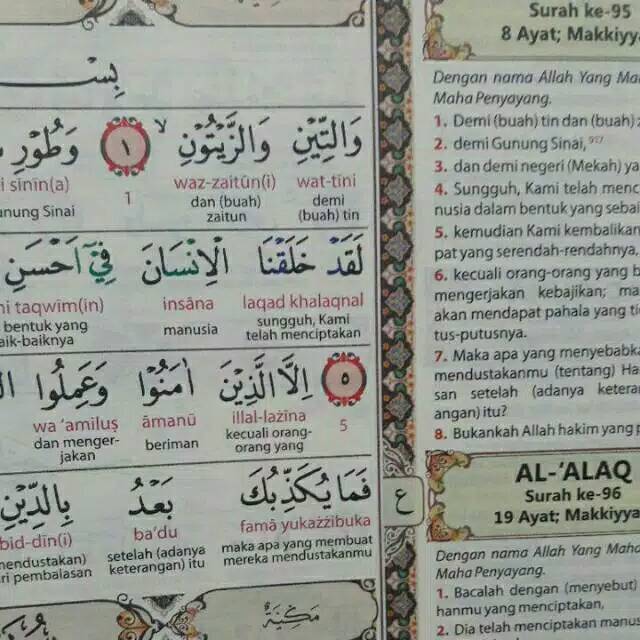 بِسْـ
وَالتِّيْنِ وَالزَّيْتُوْنِۙ ١ وَطُوْرِ
wat-tīni waz-zaitūn(i) 1 i sīnīn(a)
demi (buah) tin dan (buah) zaitun unung Sinai
لَقَدْ خَلَقْنَا الْاِنْسَانَ فِيْٓ اَحْسَنِ
laqad khalaqnal insāna taqwīm(in)
sungguh, Kami telah menciptakan manusia bentuk yang aik-baiknya
٥ اِلَّا الَّذِيْنَ اٰمَنُوْا وَعَمِلُوا
5 illal-lażīna āmanū wa ‘amiluṣ
kecuali orang-orang yang beriman dan menger-jakan
فَمَا يُكَذِّبُكَ بَعْدُ بِالدِّيْنِ
famā yukażżibuka ba‘du bid-dīn(i)
maka apa yang membuat mereka mendustakanmu setelah (adanya keterangan) itu mendustakan) ri pembalasan
مَكِّيَّةٌ
ع
Surah ke-95
8 Ayat; Makkiyya
Dengan nama Allah Yang Ma
Maha Penyayang.
1. Demi (buah) tin dan (buah) z
2. demi Gunung Sinai,⁹¹⁷
3. dan demi negeri (Mekah) ya
4. Sungguh, Kami telah menc
nusia dalam bentuk yang sebai
5. kemudian Kami kembalikan
pat yang serendah-rendahnya,
6. kecuali orang-orang yang b
mengerjakan kebajikan; ma
akan mendapat pahala yang ti
tus-putusnya.
7. Maka apa yang menyebabka
mendustakanmu (tentang) Ha
san setelah (adanya keteran
angan) itu?
8. Bukankah Allah hakim yang p
AL-‘ALAQ
Surah ke-96
19 Ayat; Makkiyya
Dengan nama Allah Yang Maha
Maha Penyayang.
1. Bacalah dengan (menyebut)
hanmu yang menciptakan,
2. Dia telah menciptakan manu